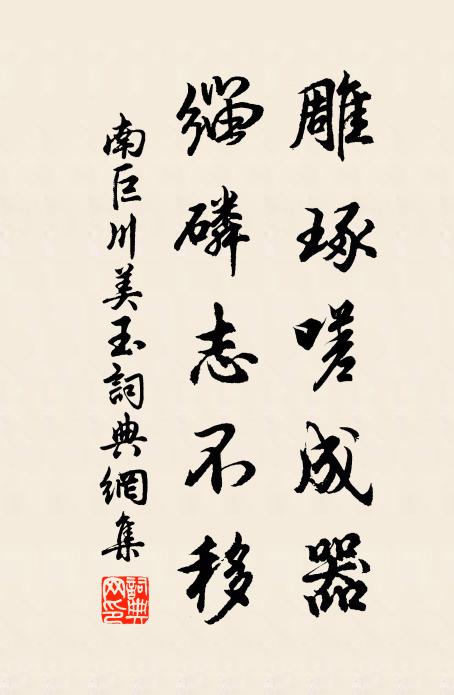 雕琢嗟成器
緇磷志不移
南巨川美玉詞典網集
詞典网印